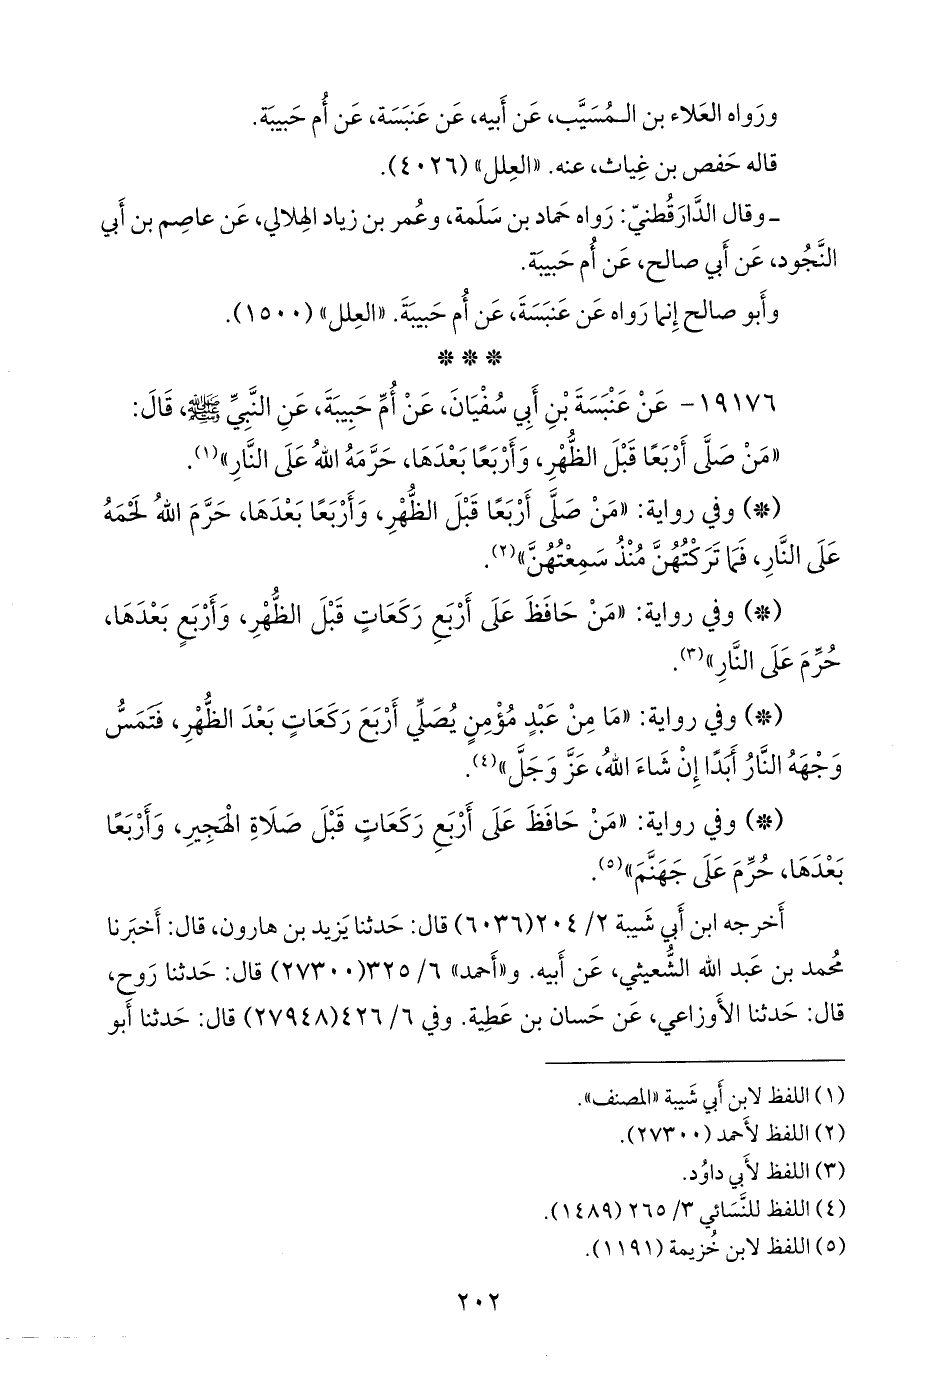 ورَواه العَلاء بن المُسَيَّب، عَن أَبيه، عَن عَنبَسَة، عَن أُم حَبيبَة.
قاله حَفص بن غِياث، عنه. «العِلل» (٤٠٢٦).
ـ وقال الدَّارَقُطنيّ: رَواه حَماد بن سَلَمة، وعُمر بن زِياد الهِلالي، عَن عاصِم بن أَبي
النَّجُود، عَن أَبي صالح، عَن أُم حَبيبَة.
وأَبو صالح إِنما رَواه عَن عَنبَسَةَ، عَن أُم حَبيبَةَ. «العِلل» (١٥٠٠).
* * *
١٩١٧٦- عَنْ عَنْبَسَةَ بْنِ أَبِي سُفْيَانَ، عَنْ أُمِّ حَبِيبَةَ، عَنِ النَّبِيِّ ﷺ، قَالَ:
«مَنْ صَلَّى أَرْبَعًا قَبْلَ الظُّهْرِ، وَأَرْبَعًا بَعْدَهَا، حَرَّمَهُ اللهُ عَلَى النَّارِ»(١).
(*) وفي رواية: «مَنْ صَلَّى أَرْبَعًا قَبْلَ الظُّهْرِ، وَأَرْبَعًا بَعْدَهَا، حَرَّمَ اللهُ لَحْمَهُ
عَلَى النَّارِ، فَمَا تَرَكْتُهُنَّ مُنْذُ سَمِعْتُهُنَّ»(٢).
(*) وفي رواية: «مَنْ حَافَظَ عَلَى أَرْبَعِ رَكَعَاتٍ قَبْلَ الظُّهْرِ، وَأَرْبَعٍ بَعْدَهَا،
حُرِّمَ عَلَى النَّارِ»(٣).
(*) وفي رواية: «مَا مِنْ عَبْدٍ مُؤْمِنٍ يُصَلِّي أَرْبَعَ رَكَعَاتٍ بَعْدَ الظُّهْرِ، فَتَمَسُّ
وَجْهَهُ النَّارُ أَبَدًا إِنْ شَاءَ اللهُ، عَزَّ وَجَلَّ»(٤).
(*) وفي رواية: «مَنْ حَافَظَ عَلَى أَرْبَعِ رَكَعَاتٍ قَبْلَ صَلَاةِ الْهَجِيرِ، وَأَرْبَعًا
بَعْدَهَا، حُرِّمَ عَلَى جَهَنَّمَ»(٥).
أَخرجه ابن أَبي شَيبة ٢/ ٢٠٤(٦٠٣٦) قال: حَدثنا يَزيد بن هارون، قال: أَخبَرنا
مُحمد بن عَبد الله الشُّعيثي، عَن أَبيه. و«أَحمد» ٦/ ٣٢٥(٢٧٣٠٠) قال: حَدثنا رَوح،
قال: حَدثنا الأَوزاعي، عَن حَسان بن عَطية. وفي ٦/ ٤٢٦(٢٧٩٤٨) قال: حَدثنا أَبو
(١) اللفظ لابن أَبي شَيبة «المصنف».
(٢) اللفظ لأَحمد (٢٧٣٠٠).
(٣) اللفظ لأَبي داوُد.
(٤) اللفظ للنَّسَائي ٣/ ٢٦٥ (١٤٨٩).
(٥) اللفظ لابن خُزيمة (١١٩١).
٢٠٢